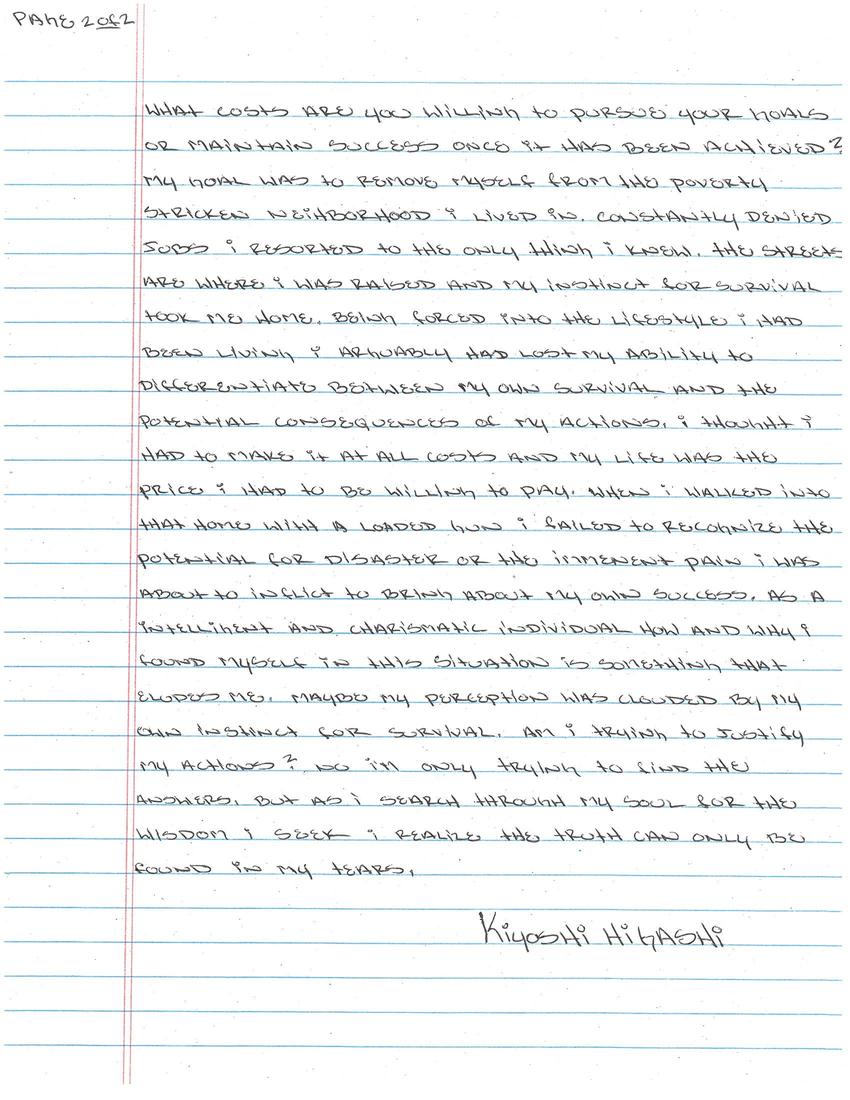 PAGE 2 of 2
WHAT COSTS ARE YOU WILLING to PURSUE YOUR GOALS
OR MAINTAIN SUCCESS ONCE it HAS BEEN ACHIEVED?
MY GOAL WAS to REMOVE MYSELF FROM THE POVERTY
STRICKEN NEIGHBORHOOD i LIVED IN. CONSTANTLY DENIED
JOBS i RESORTED TO THE ONLY THING i KNEW. THE STREETS
ARE WHERE i WAS RAISED AND MY INSTINCT FOR SURVIVAL
TOOK ME HOME. BEING FORCED INTO THE LIFESTYLE i HAD
BEEN LIVING i ARGUABLY HAD LOST MY ABILITY TO
DIFFERENTIATE BETWEEN MY OWN SURVIVAL AND THE
POTENTIAL CONSEQUENCES OF MY ACTIONS. i THOUGHT i
HAD TO MAKE IT AT ALL COSTS AND MY LIFE WAS THE
PRICE i HAD TO BE WILLING TO PAY. WHEN i WALKED INTO
THAT HOME WITH A LOADED GUN i FAILED TO RECOGNIZE THE
POTENTIAL FOR DISASTER OR THE IMMENENT PAIN i WAS
ABOUT TO INFLICT TO BRING ABOUT MY OWN SUCCESS. AS A
INTELLIGENT AND CHARISMATIC INDIVIDUAL HOW AND WHY i
FOUND MYSELF IN THIS SITUATION IS SOMETHING THAT
ELUDES ME. MAYBE MY PERCEPTION WAS CLOUDED BY MY
OWN INSTINCT FOR SURVIVAL. AM i TRYING TO JUSTIFY
MY ACTIONS? NO IM ONLY TRYING TO FIND THE
ANSWERS. BUT AS i SEARCH THROUGH MY SOUL FOR THE
WISDOM i SEEK i REALIZE THE TRUTH CAN ONLY BE
FOUND IN MY TEARS.
KiyOSHi HiGASHi